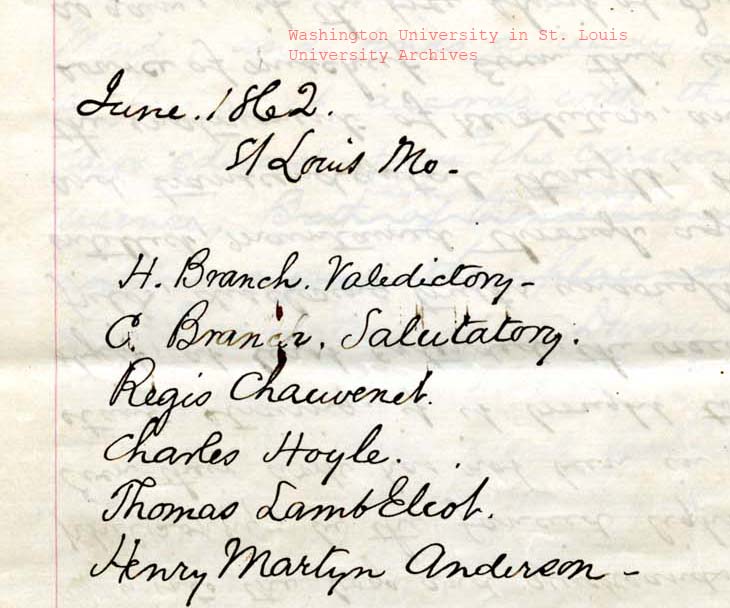 Washington University in St. Louis
University Archives
June. 1862.
St Louis Mo -
H. Branch. Valedictory -
C. Branch. Salutatory.
Regis Chauvenet.
Charles Hoyle.
Thomas Lamb Eliot.
Henry Martyn Anderson -